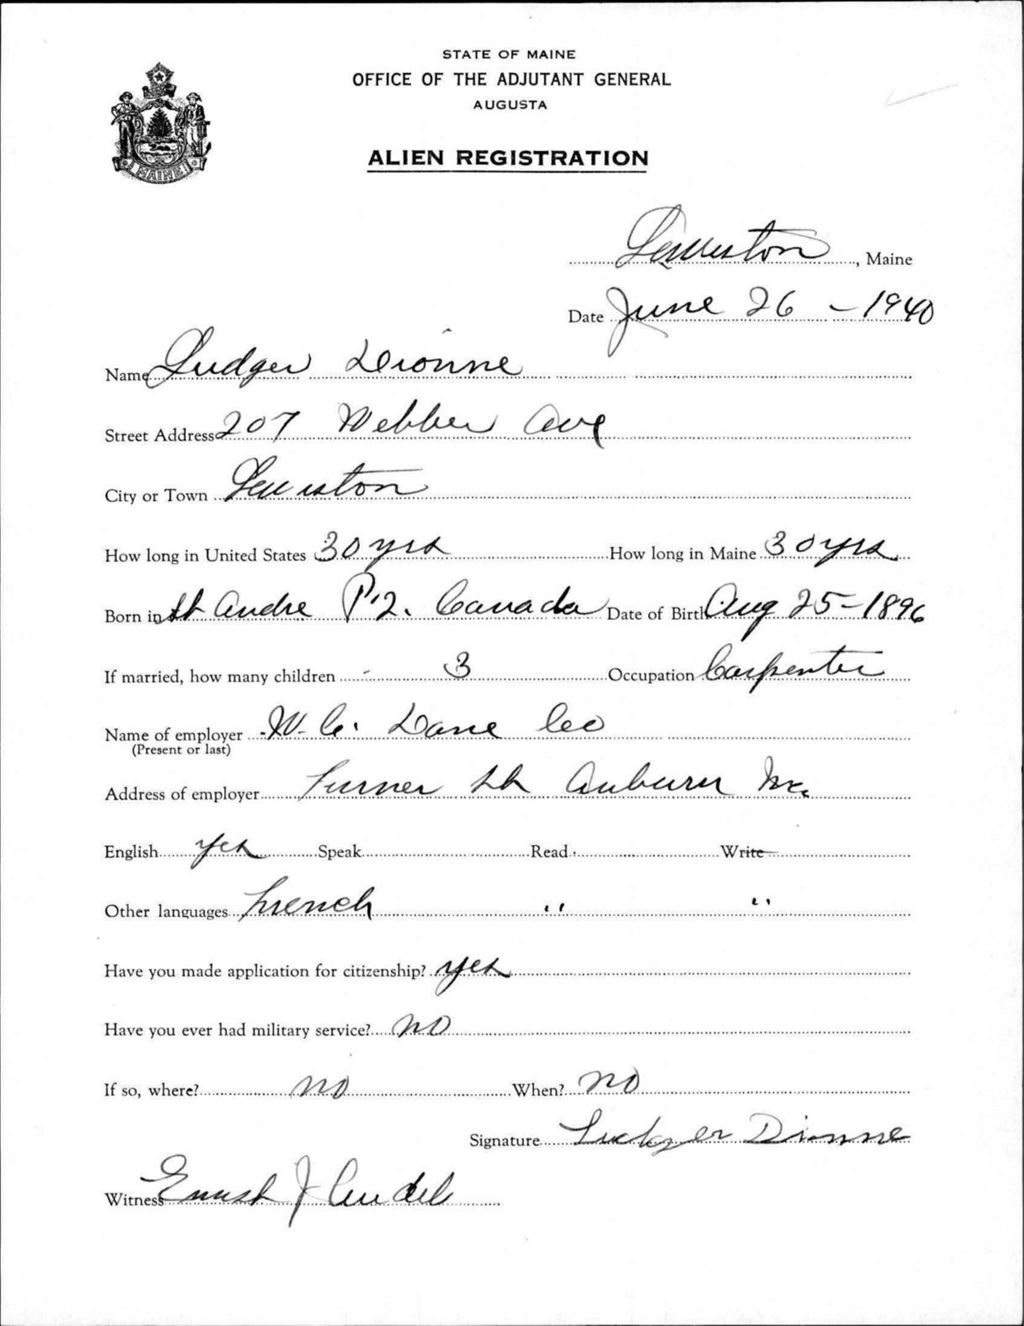 STATE OF MAINE
OFFICE OF THE ADJUTANT GENERAL
AUGUSTA
MAINE
ALIEN REGISTRATION
Lewiston, Maine
Date June 26 - 1940
Name Ludger Dionne
Street Address 207 Webber Ave
City or Town Lewiston
How long in United States 30 yrs How long in Maine 30 yrs
Born in St Andre P.Q. Canada Date of Birth Aug 25-1896
If married, how many children 3 Occupation Carpenter
Name of employer W. C. Dane Co
(Present or last)
Address of employer Turner St Auburn Me.
English yes Speak Read Write
Other languages French " "
Have you made application for citizenship? yes
Have you ever had military service? no
If so, where? no When? no
Signature Ludger Dionne
Witness J